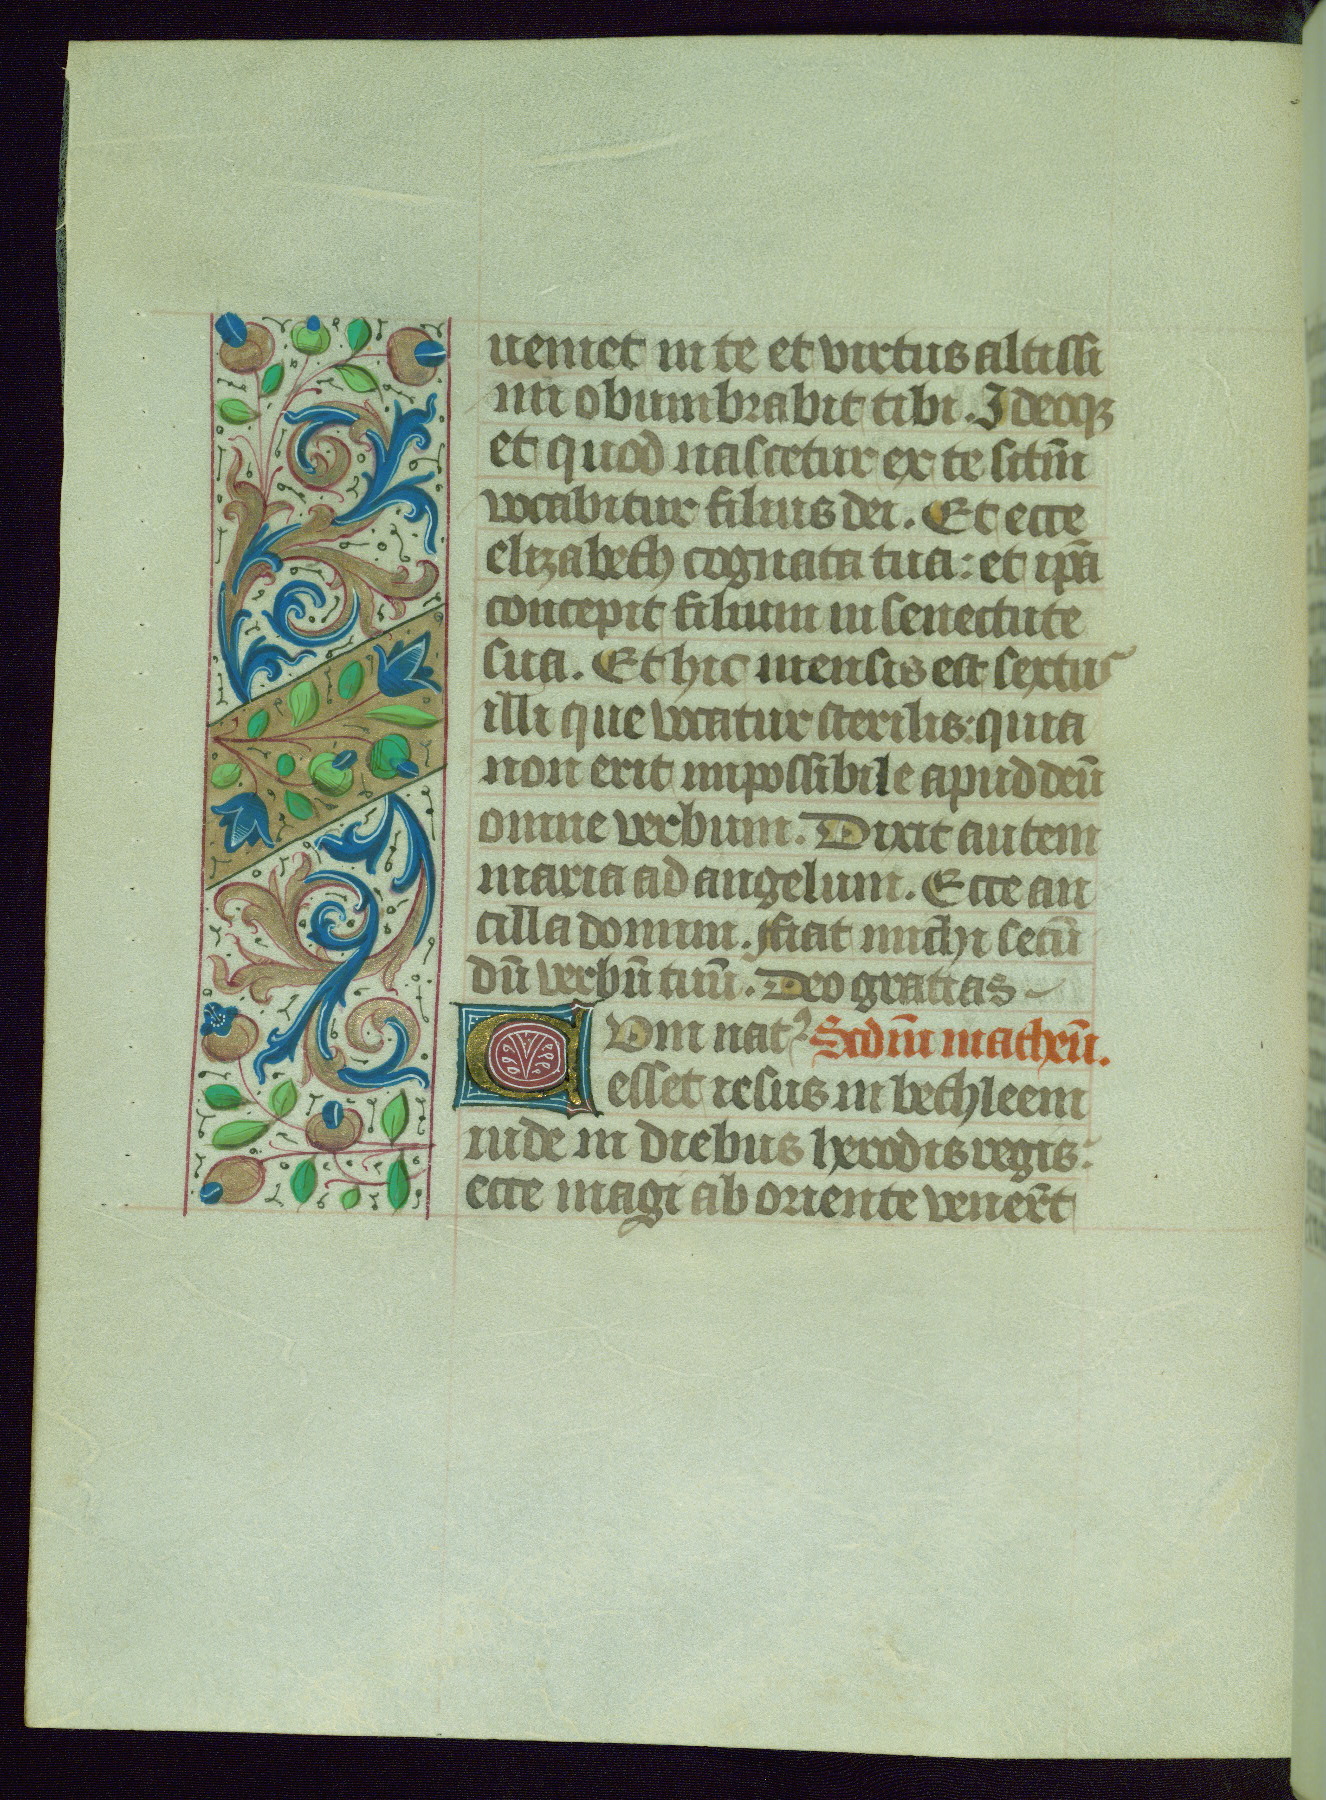 ueniet in te et virtus altissi
mi obumbrabit tibi. Ideoqꝫ
et quod nascetur ex te sctm̄
vocabitur filius dei. Et ecce
elizabeth cognata tua: et ip̄a
concepit filium in senectute
sua. Et hic mensis est sextus
illi que vocatur sterilis: quia
non erit impossibile apud deū
omne verbum. Dixit autem
maria ad angelum. Ecce an
cilla domini. fiat michi secū
dū verbū tuū. Deo gratias
CVm natꝰ Scdm̄ matheū.
esset iesus in bethleem
iude in diebus herodis regis:
ecce magi ab oriente venerт̄